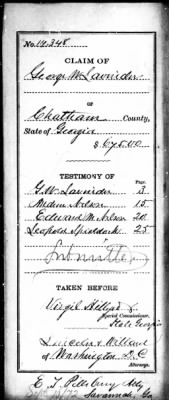 No. 19,348
CLAIM OF
George W. Lavender
OF
Chatham County,
State of Georgia
$ 675.00
TESTIMONY OF
Page.
G. W. Lavender 3
Nelson 15
Edward M. Nelson 20
Leopold 25
Submitted
TAKEN BEFORE
Virgil Hillyer
Special Commissioner,
State Georgia
Willard
of Washington D.C
Attorneys.
E. T. Pillsbury Atty
Savannah Ga